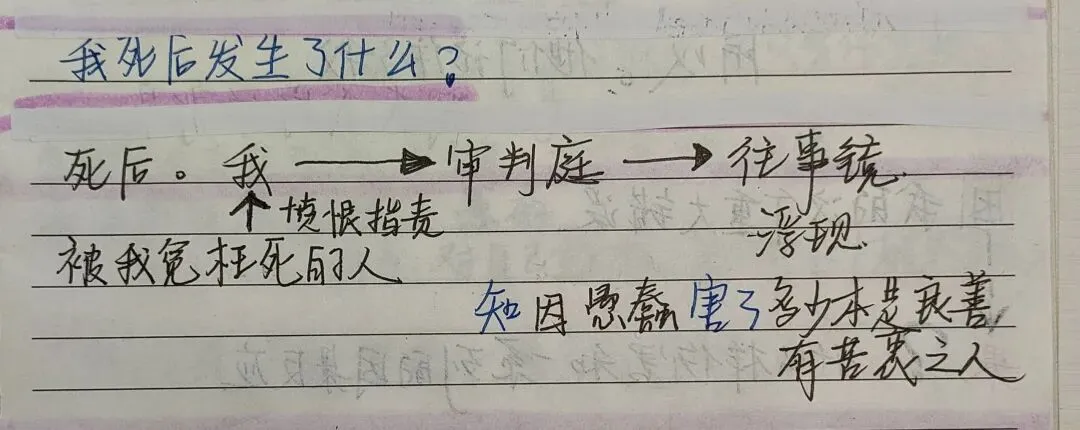 我死后发生了什么?
死后。我 → 审判庭 → 往事镜
↑ 愤恨指责
浮现
被我冤枉死的人
知因愚蠢害了多少本是良善,
有苦衷之人